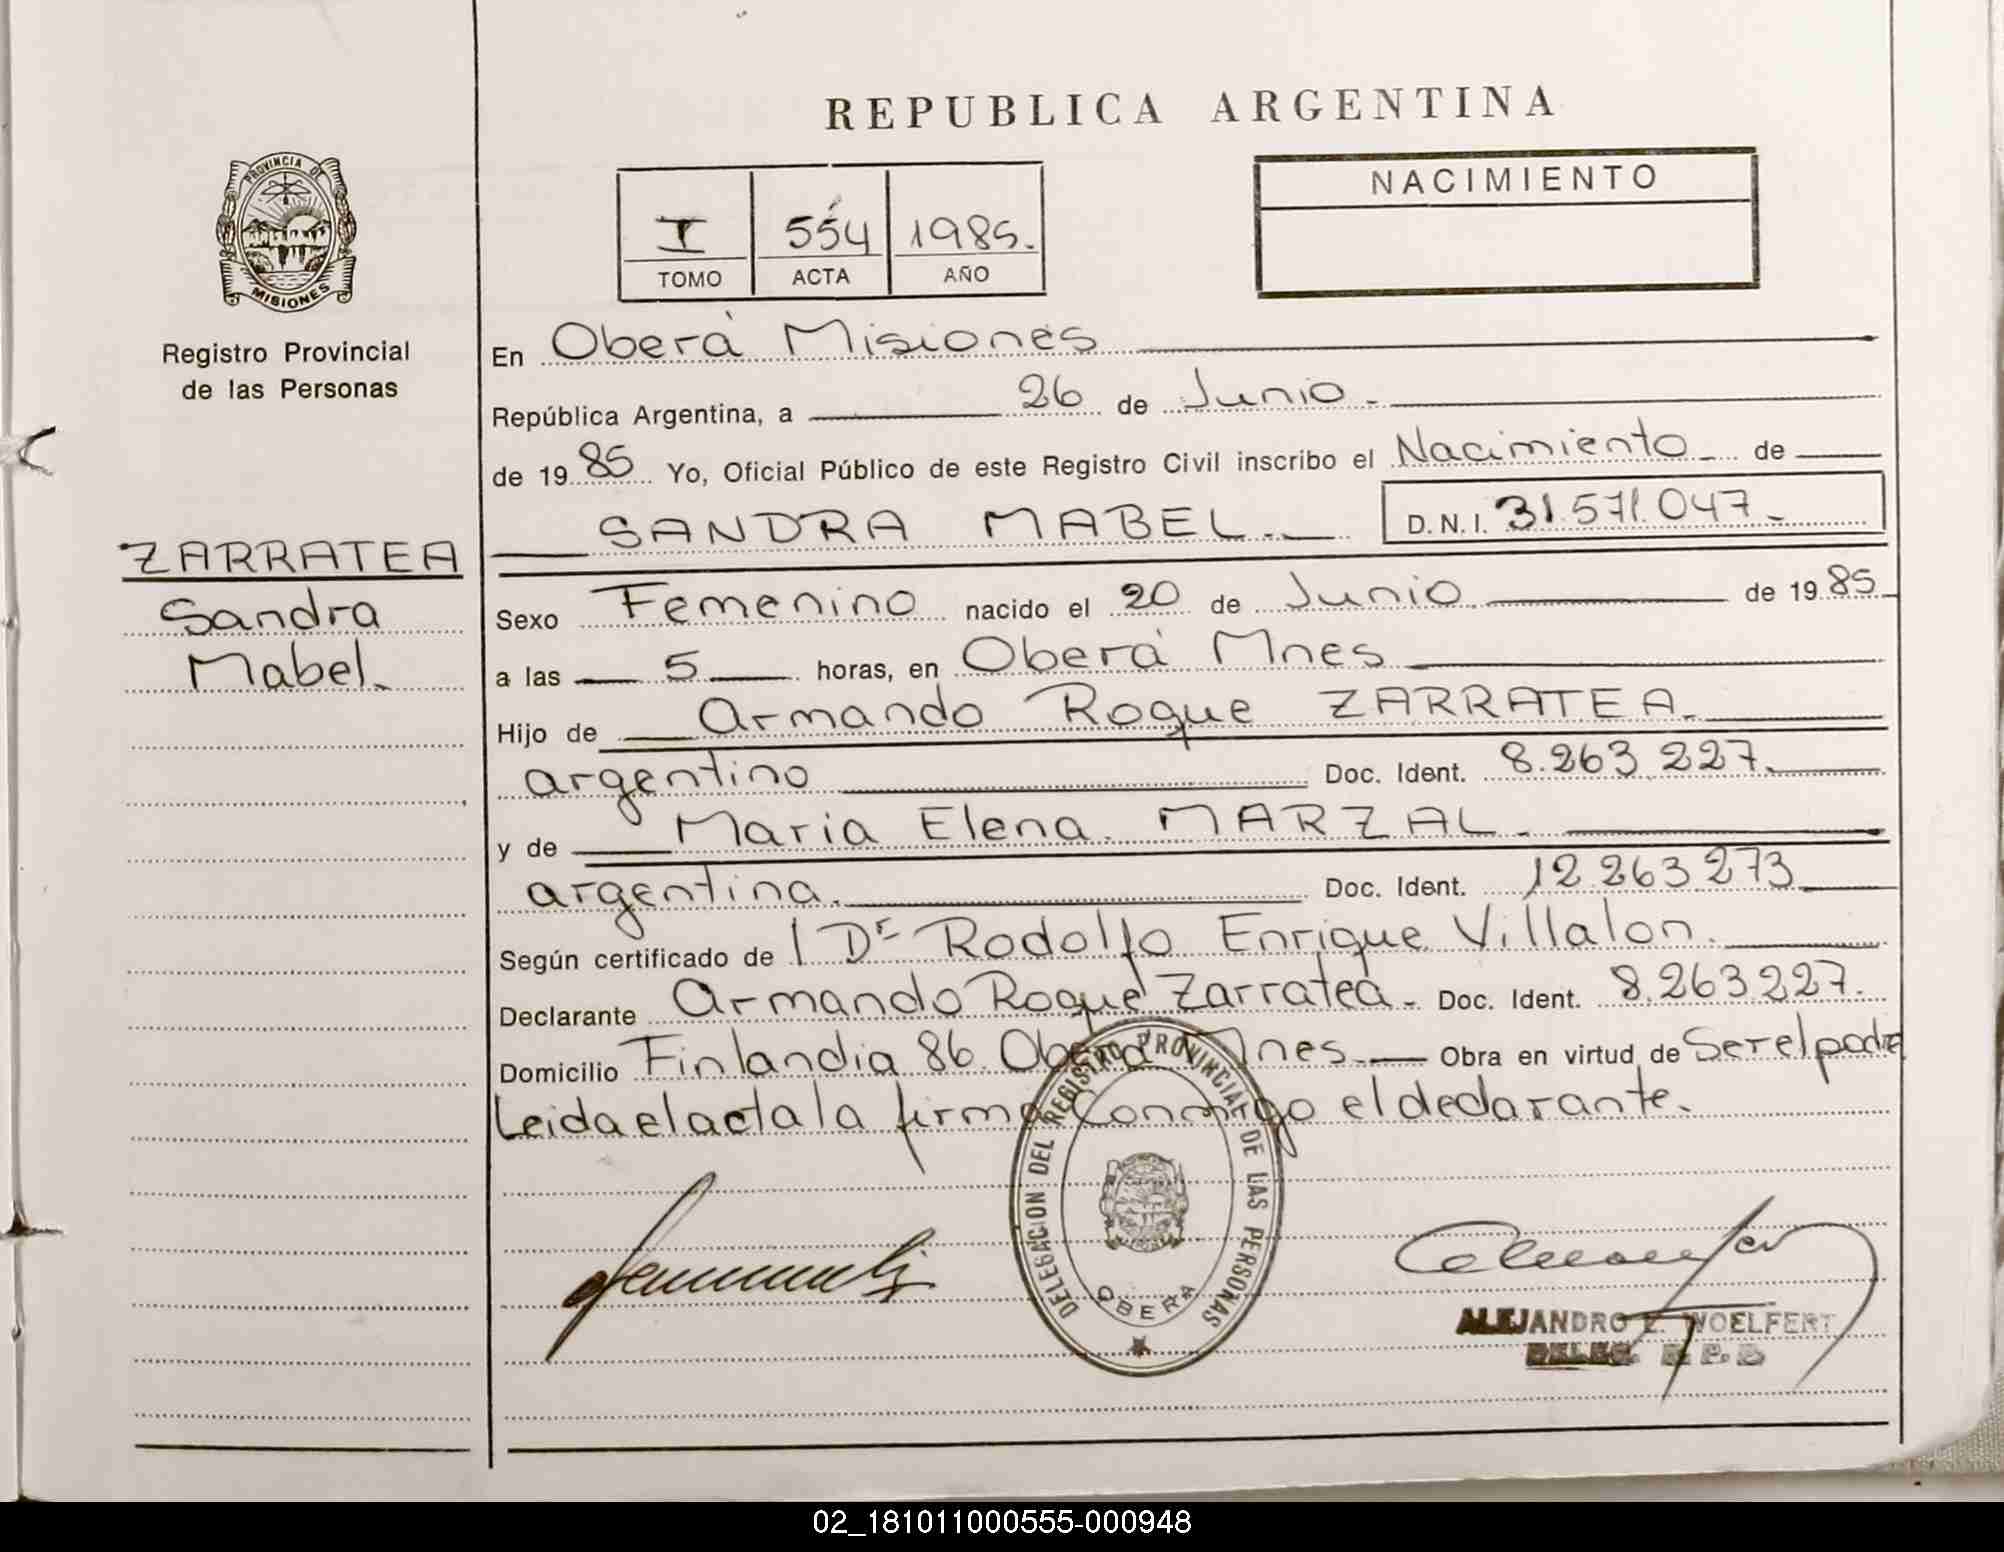 REPUBLICA ARGENTINA
PROVINCIA DE
MISIONES
Registro Provincial
de las Personas
ZARRATEA
Sandra
Mabel.
I 554 1985.
TOMO ACTA AÑO
NACIMIENTO
En Oberá Misiones
República Argentina, a 26 de Junio.
de 1985 Yo, Oficial Público de este Registro Civil inscribo el Nacimiento de
SANDRA MABEL. D.N.I. 31.571.047
Sexo Femenino nacido el 20 de Junio de 1985
a las 5 horas, en Oberá Mnes
Hijo de Armando Roque ZARRATEA.
argentino Doc. Ident. 8.263.227.
y de Maria Elena. MARZAL.
argentina. Doc. Ident. 12.263.273
Según certificado de Dr Rodolfo Enrique Villalon.
Declarante Armando Roque Zarratea. Doc. Ident. 8.263.227.
Domicilio Finlandia 86. Oberá Mnes Obra en virtud de Ser el padre
Leida el acta la firma conmigo el declarante.
DELEGACION DEL REGISTRO PROVINCIAL DE LAS PERSONAS
OBERA
ALEJANDRO E. WOELFERT
DELEG. R. P.
02_181011000555-000948